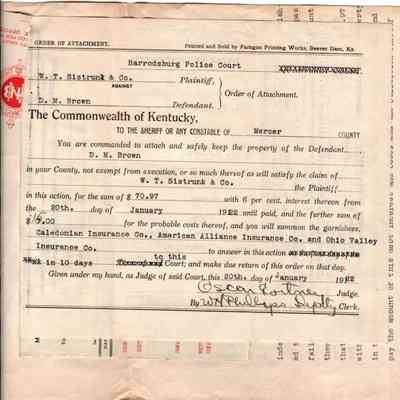 ORDER OF ATTACHMENT.
Printed and Sold by Paragon Printing Works, Beaver Dam, Ky.
Harrodsburg Police Court
W. T. Sistrunk & Co. Plaintiff,
AGAINST
Order of Attachment.
D. M. Brown Defendant.
The Commonwealth of Kentucky,
TO THE SHERIFF OR ANY CONSTABLE OF Mercer COUNTY
You are commanded to attach and safely keep the property of the Defendant
D. M. Brown
in your County, not exempt from execution, or so much thereof as will satisfy the claim of
W. T. Sistrunk & Co.
the Plaintiff
in this action, for the sum of $ 70.97 with 6 per cent. interest thereon from
the 20th. day of January 1922 until paid, and the further sum of
$ 15.00 for the probable costs thereof, and you will summon the garnishees,
Caledonian Insurance Co., American Alliance Insurance Co. and Ohio Valley
Insurance Co. to answer in this action
to this
in 10 days Court; and make due return of this order on that day.
Given under my hand, as Judge of said Court, this 20th. day of January 1922
Judge.
By W N Phillips Depty Clerk.